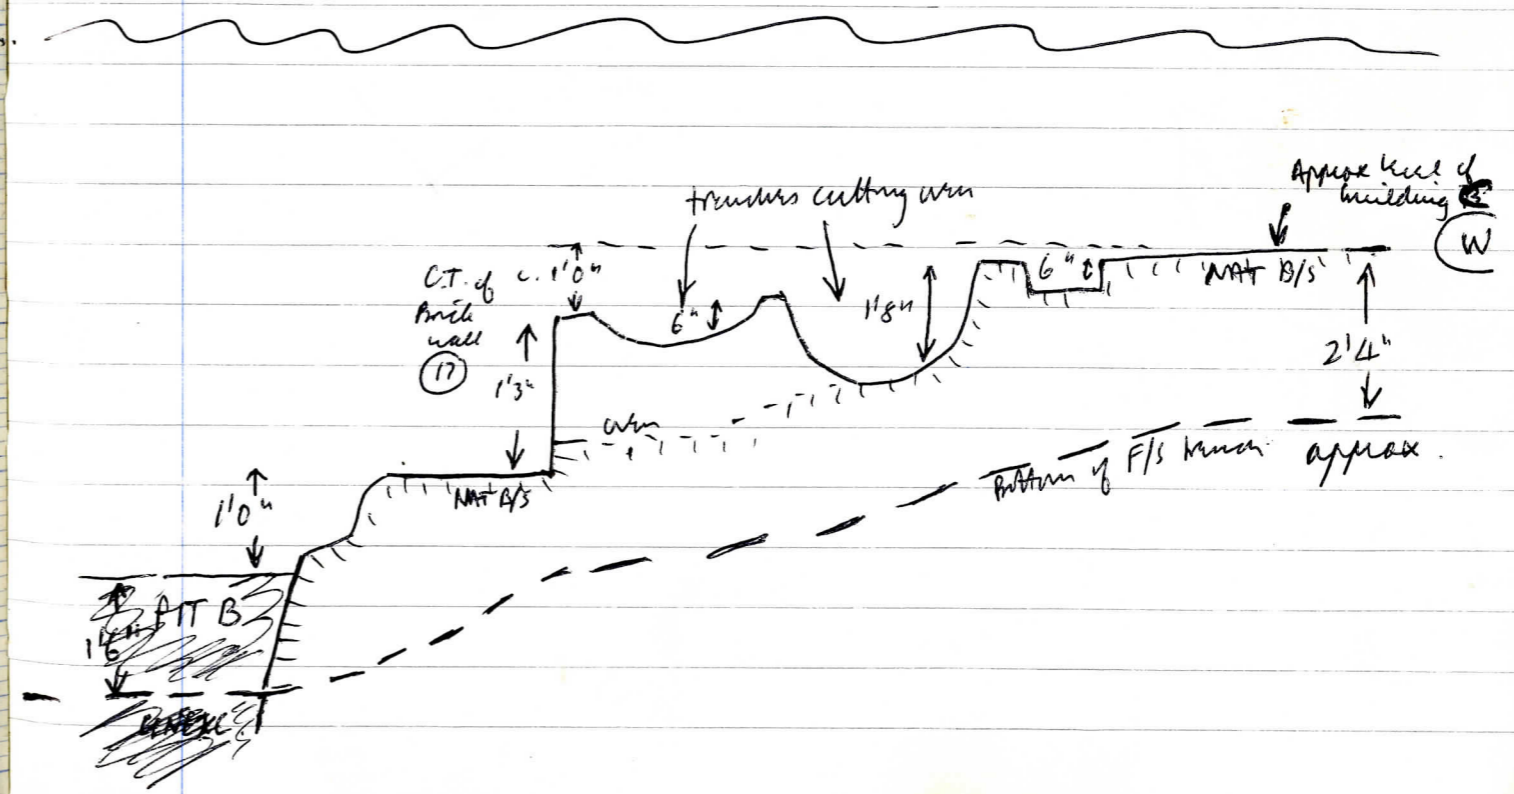 Approx level of
building
W
trenches cutting oven
C.T. of
Brick
wall
17
c. 1'0"
6"
1'8"
6"
NAT B/S
2'4"
1'3"
oven
Bottom of F/S trench approx.
NAT B/S
1'0"
PIT B
1'6"